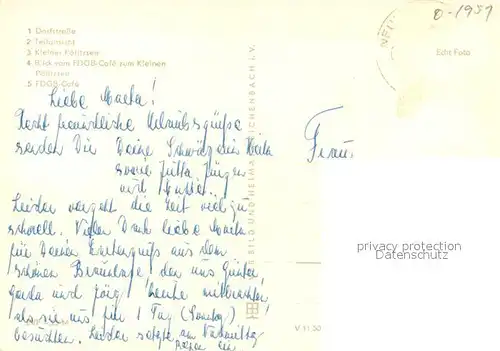 1 Dorfstraße
2 Teilansicht
3 Kleiner Pälitzsee
4 Blick vom FDGB-Café zum Kleinen
Pälitzsee
5 FDGB-Café
0-1959
Echt Foto
Liebe Marta!
Recht freundliche Urlaubsgrüße
senden Dir Deine Schwägerin Herta
sowie Jutta, Jürgen
und Mutti.
Leider vergeht die Zeit viel zu
schnell. Vielen Dank liebe Marta
für Deinen Kartengruß aus dem
schönen Braunlage den uns Günter,
Gerda und Jörg heute mitbrachten,
als sie uns für 1 Tag (Sonntag)
besuchten. Leider setzte am Vormittag
Regen ein
Frau
BILD UND HEIMAT REICHENBACH I. V.
V 11 50
privacy protection